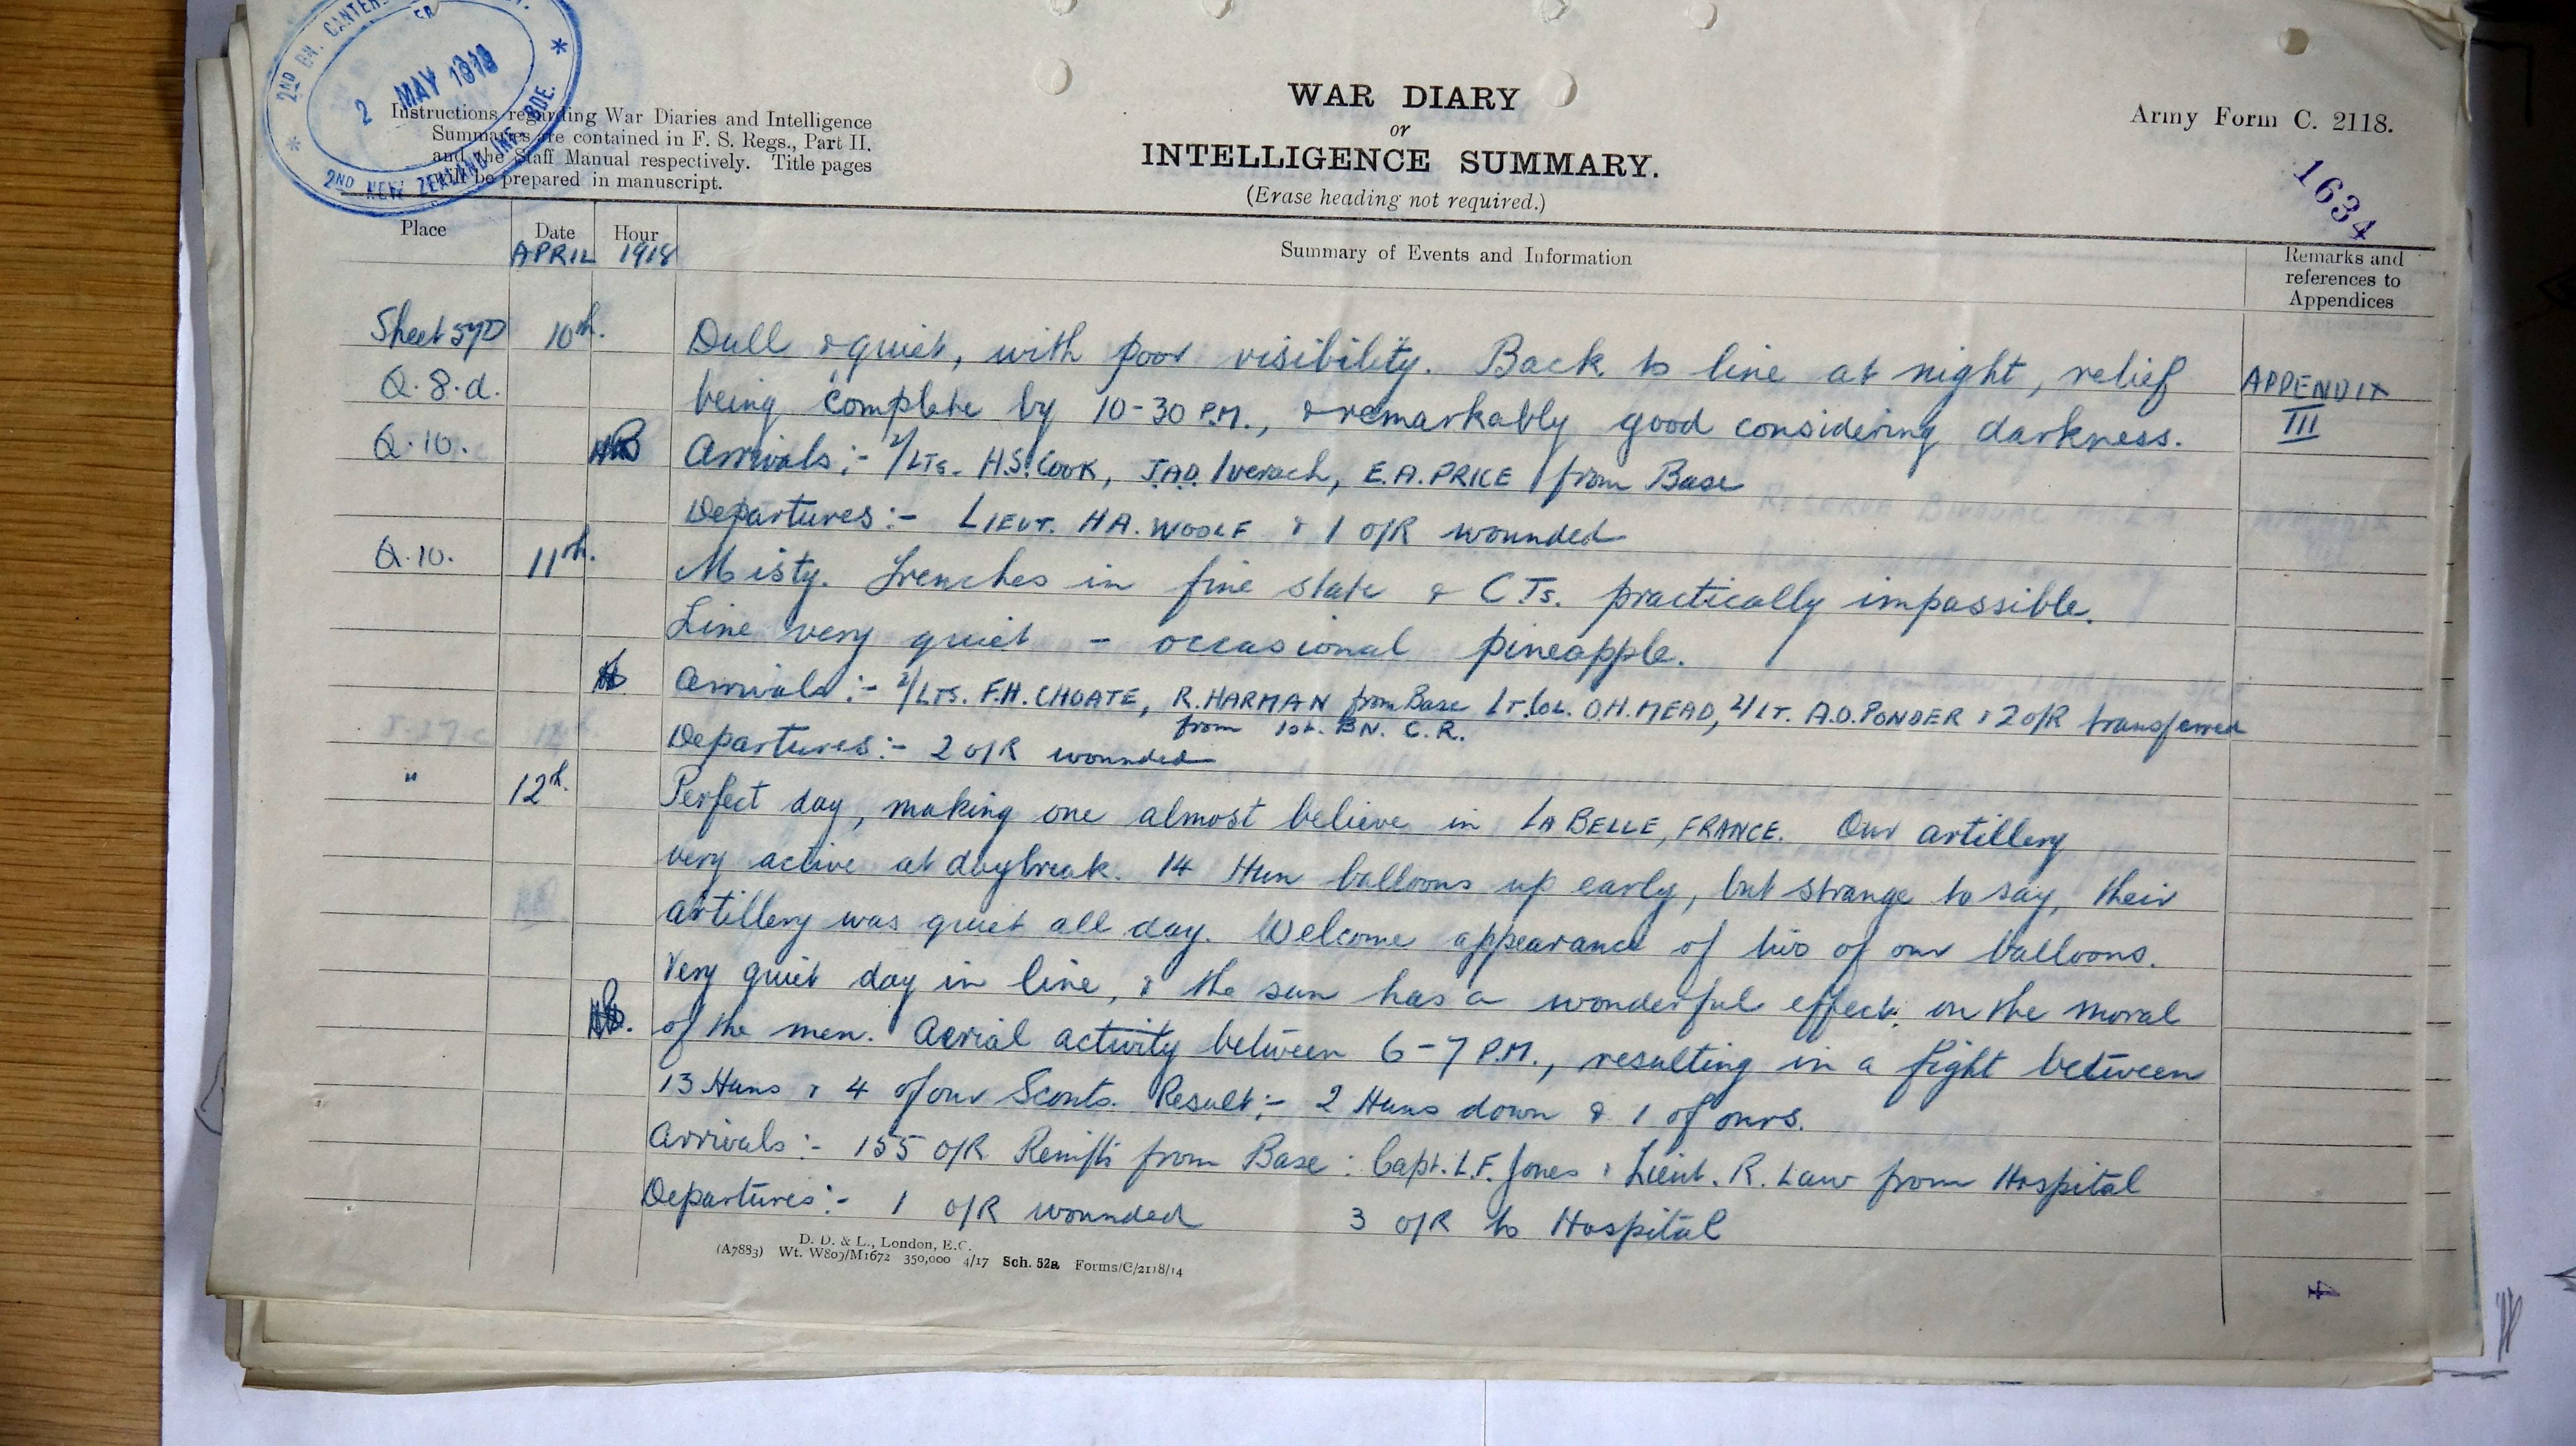 2ND BN. CANTER
2 MAY 1918
2ND NEW ZEALAND INF. BDE.
Instructions regarding War Diaries and Intelligence
Summaries are contained in F. S. Regs., Part II.
and the Staff Manual respectively. Title pages
will be prepared in manuscript.
WAR DIARY
or
INTELLIGENCE SUMMARY.
(Erase heading not required.)
Army Form C. 2118.
1634
Place Date Hour Summary of Events and Information Remarks and
references to
Appendices
APRIL 1918
Sheet 57D 10th. Dull & quiet, with poor visibility. Back to line at night, relief
Q.8.d. being complete by 10-30 P.M., & remarkably good considering darkness. APPENDIX
III
Q.10. Arrivals:- 2/LTs. H.S. COOK, J.A.D. Iverach, E.A. PRICE from Base
Departures:- LIEUT. H.A. WOOLF & 1 O/R wounded
Q.10. 11th. Misty. Trenches in fine state & C.Ts. practically impassible.
Line very quiet - occasional pineapple.
Arrivals:- 2/LTS. F.H. CHOATE, R. HARMAN from Base LT. COL. O.H. MEAD, 2/LT. A.D. PONDER & 2 O/R transferred
from 1st. BN. C.R.
Departures:- 2 O/R wounded
" 12th. Perfect day, making one almost believe in LA BELLE, FRANCE. Our artillery
very active at daybreak. 14 Hun balloons up early, but strange to say, their
artillery was quiet all day. Welcome appearance of two of our balloons.
Very quiet day in line, & the sun has a wonderful effect on the moral
of the men. Aerial activity between 6-7 P.M., resulting in a fight between
13 Huns & 4 of our Scouts. Result:- 2 Huns down & 1 of ours.
Arrivals:- 155 O/R Reinfts from Base: Capt. L.F. Jones & Lieut. R. Law from Hospital
Departures:- 1 O/R wounded 3 O/R to Hospital
D. D. & L., London, E.C.
(A7883) Wt. W809/M1672 350,000 4/17 Sch. 52a Forms/C/2118/14
4